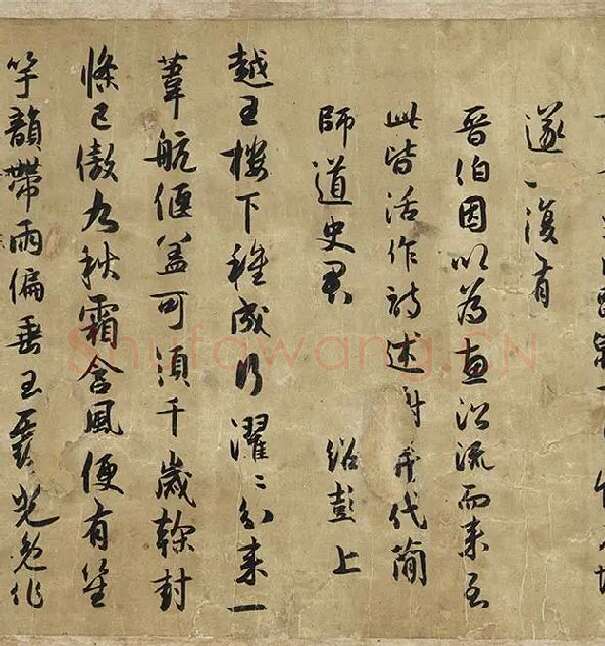 遂復有
晉伯因以為惠沿流而來至
此皆活作詩述謝兼代簡
師道史君　紹彭上
越王樓下種成行濯濯分來一
葦航偃蓋可須千歲榦封
條已傲九秋霜含風便有笙
竽韻帶雨偏垂玉露光免作
shufawang.CN